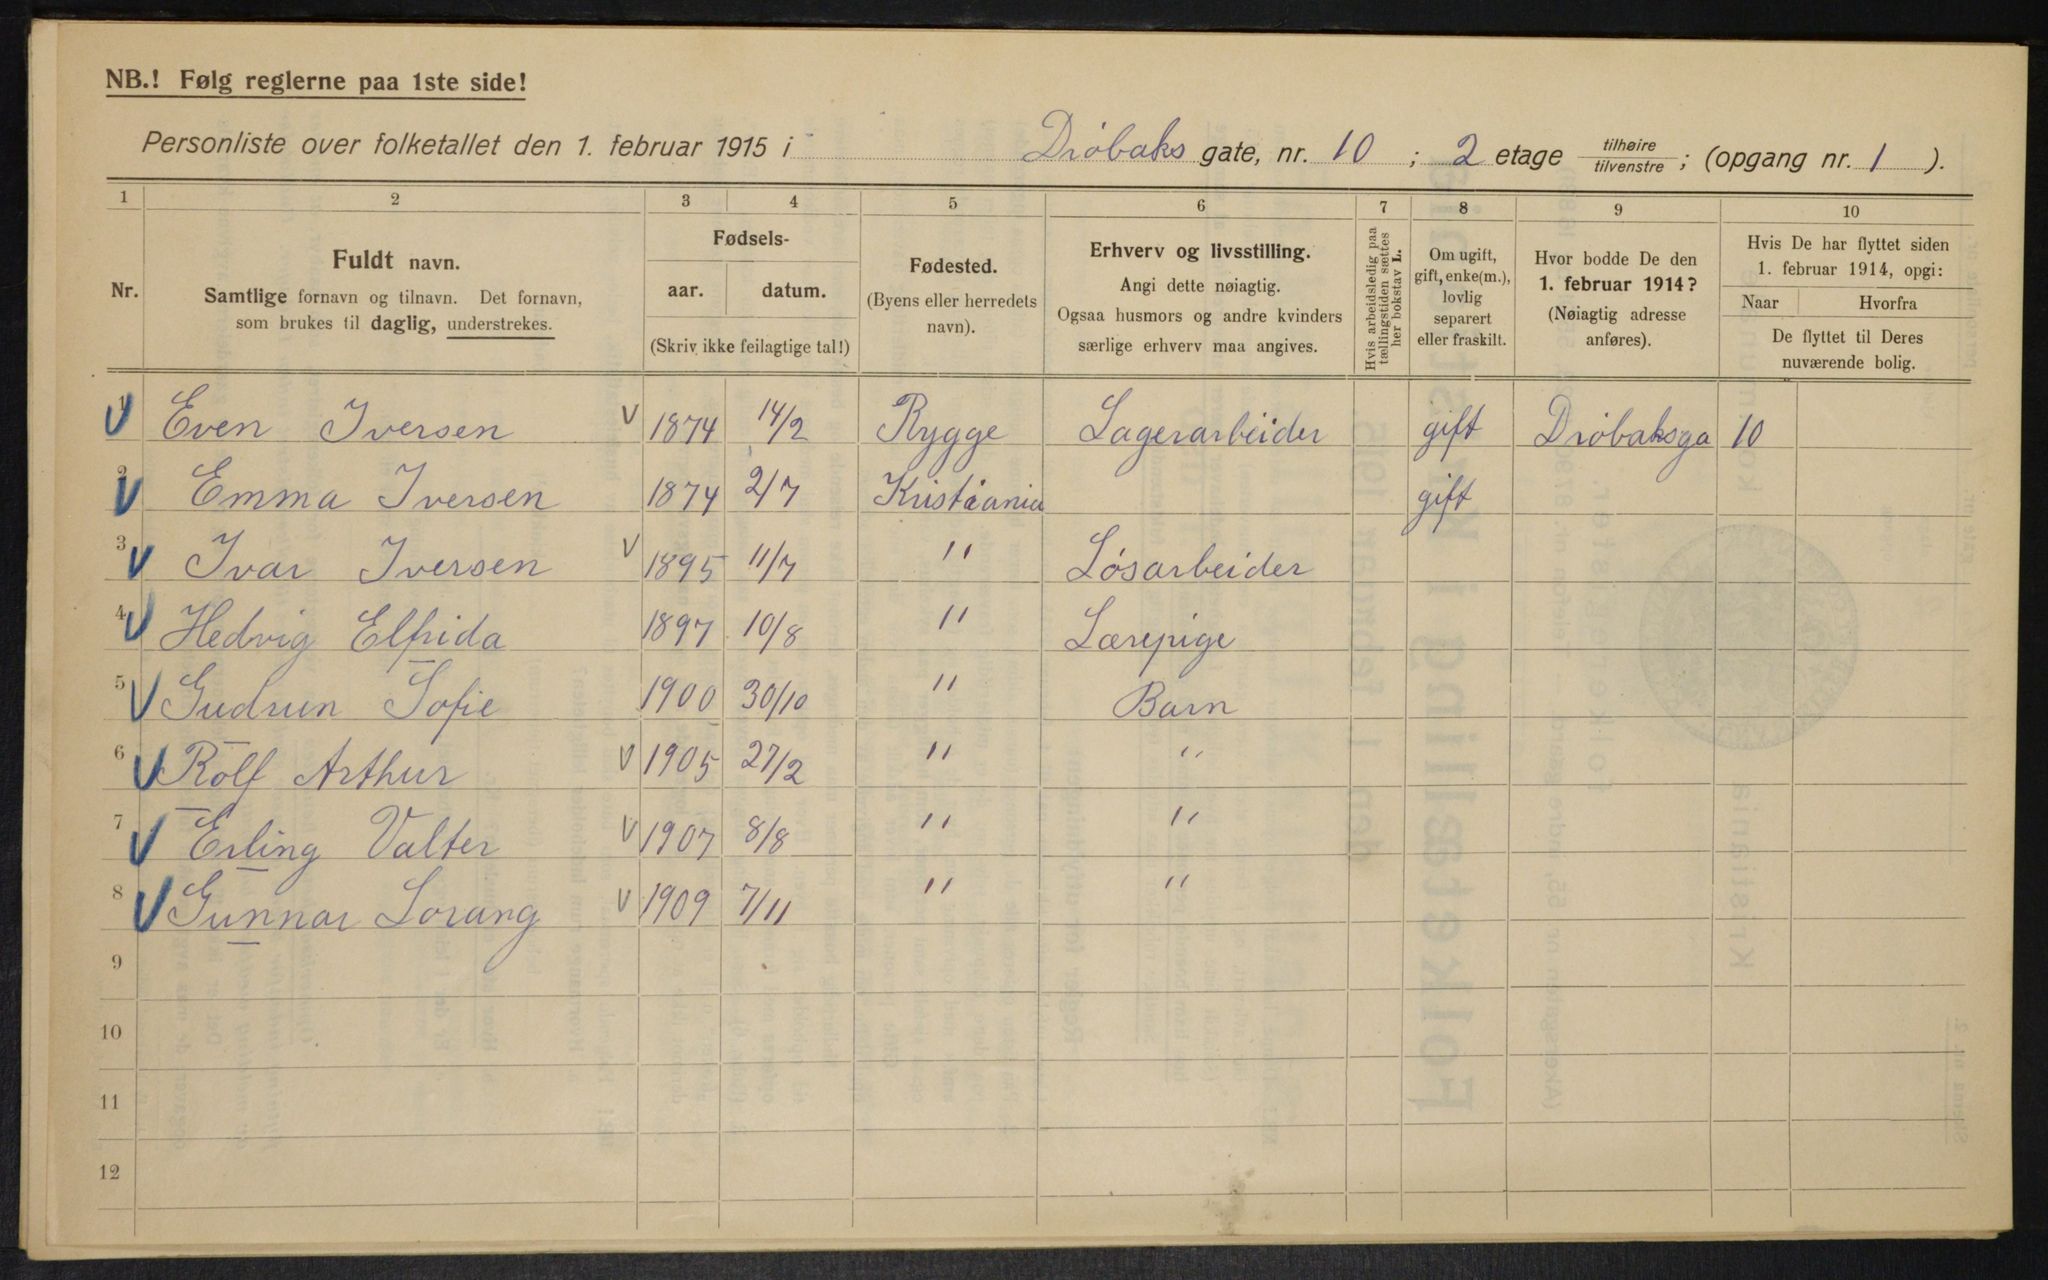 NB.! Følg reglerne paa 1ste side!
Personliste over folketallet den 1. februar 1915 i Drøbaks gate, nr. 10 ; 2 etage tilhøire/tilvenstre ; (opgang nr. 1 ).
1 2 3 4 5 6 7 8 9 10
Nr.
Fuldt navn.
Samtlige fornavn og tilnavn. Det fornavn,
som brukes til daglig, understrekes.
Fødsels-
aar. datum.
(Skriv ikke feilagtige tal!)
Fødested.
(Byens eller herredets
navn).
Erhverv og livsstilling.
Angi dette nøiagtig.
Ogsaa husmors og andre kvinders
særlige erhverv maa angives.
Hvis arbeidsledig paa
tællingstiden sættes
her bokstav L.
Om ugift,
gift, enke(m.),
lovlig
separert
eller fraskilt.
Hvor bodde De den
1. februar 1914?
(Nøiagtig adresse
anføres).
Hvis De har flyttet siden
1. februar 1914, opgi:
Naar Hvorfra
De flyttet til Deres
nuværende bolig.
1 Even Iversen V 1874 14/2 Rygge Lagerarbeider gift Drøbaksga 10
2 Emma Iversen 1874 2/7 Kristiania gift
3 Ivar Iversen V 1895 11/7 " Løsarbeider
4 Hedvig Elfrida 1897 10/8 " Lærepige
5 Gudrun Sofie 1900 30/10 " Barn
6 Rolf Arthur V 1905 27/2 " "
7 Erling Valter V 1907 8/8 " "
8 Gunnar Lorang V 1909 7/11 " "
9
10
11
12